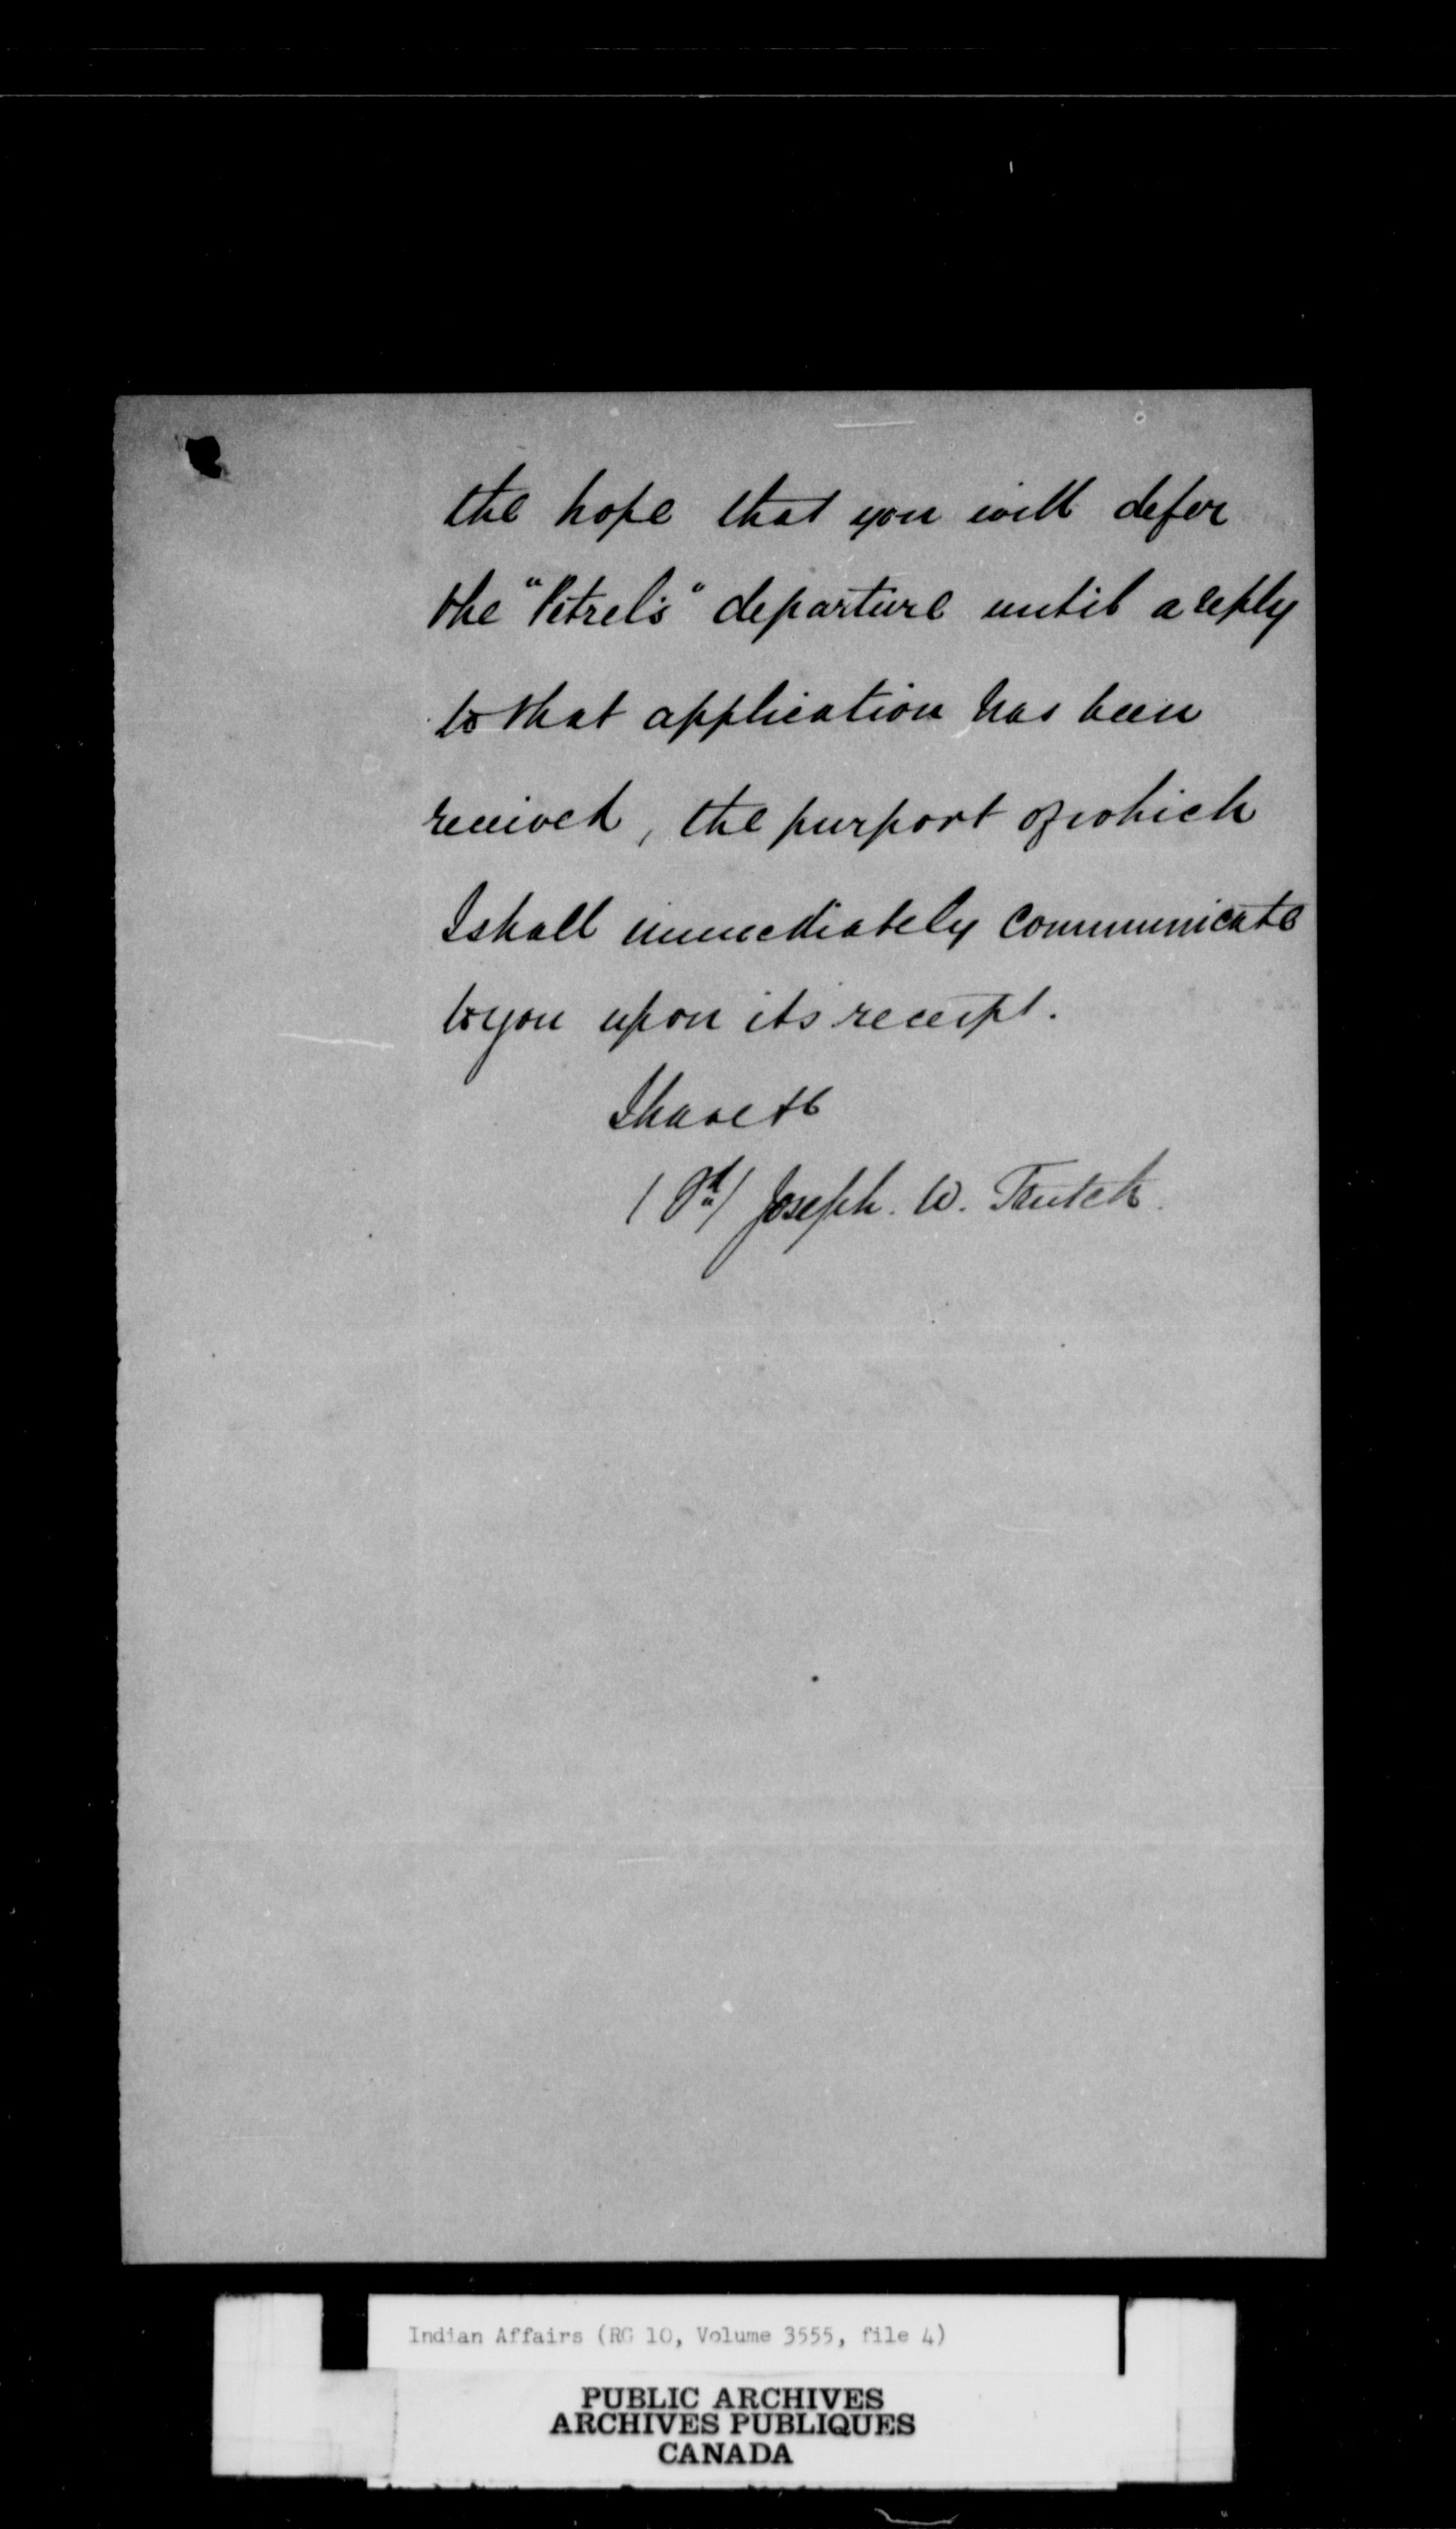 the hope that you will defer
the "Petrel's" departure until a reply
to that application has been
received, the purport of which
I shall immediately communicate
to you upon its receipt.
I have &c
(Sd) Joseph. W. Trutch.
Indian Affairs (RG 10, Volume 3555, file 4)
PUBLIC ARCHIVES
ARCHIVES PUBLIQUES
CANADA